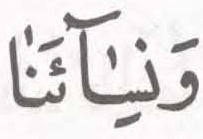 وَنِسَآئَنَا